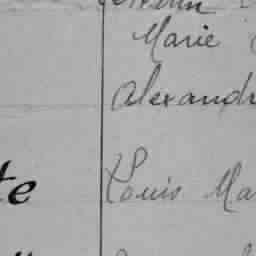 Marie
Alexand
te
Louis Ma